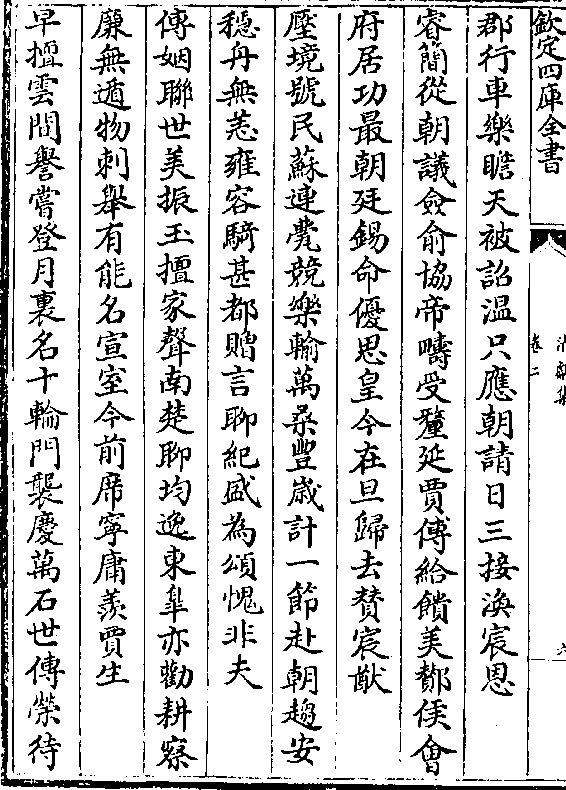 欽定四庫全書
卷二
六
郡行車樂瞻天被詔温只應朝請日三接渙宸恩
睿簡從朝議僉俞協帝疇受釐延賈傅給饋美酇侯會
府居功最朝廷錫命優思皇今在旦歸去賛宸猷
壓境號民蘇連甍競樂輸萬桑豐歲計一節赴朝趨安
穩舟無恙雍容騎甚都贈言聊紀盛為頌愧非夫
傳姻聯世美振玉擅家聲南楚聊均逸東臯亦勸耕察
亷無遁物刺舉有能名宣室今前席寧庸羨賈生
早擅雲間譽嘗登月裏名十輪門襲慶萬石世傳榮待